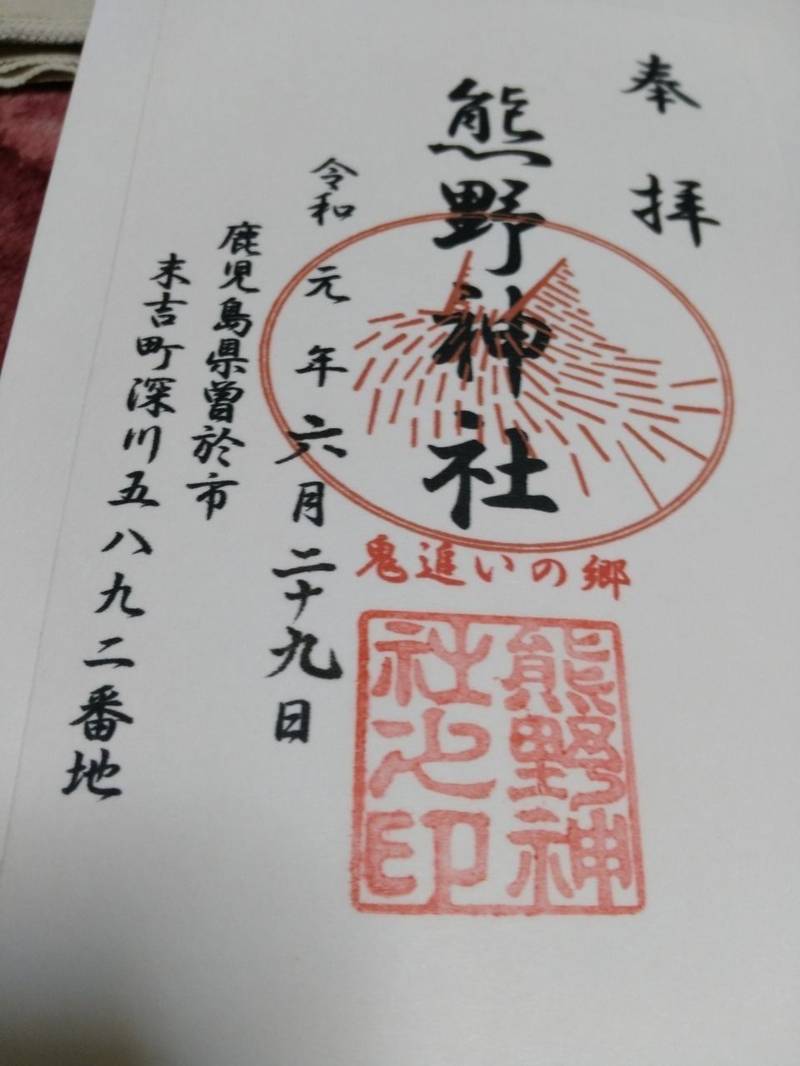 奉拝
熊野神社
鬼追いの郷
熊野神
社之印
令和元年六月二十九日
鹿児島県曽於市
末吉町深川五八九二番地